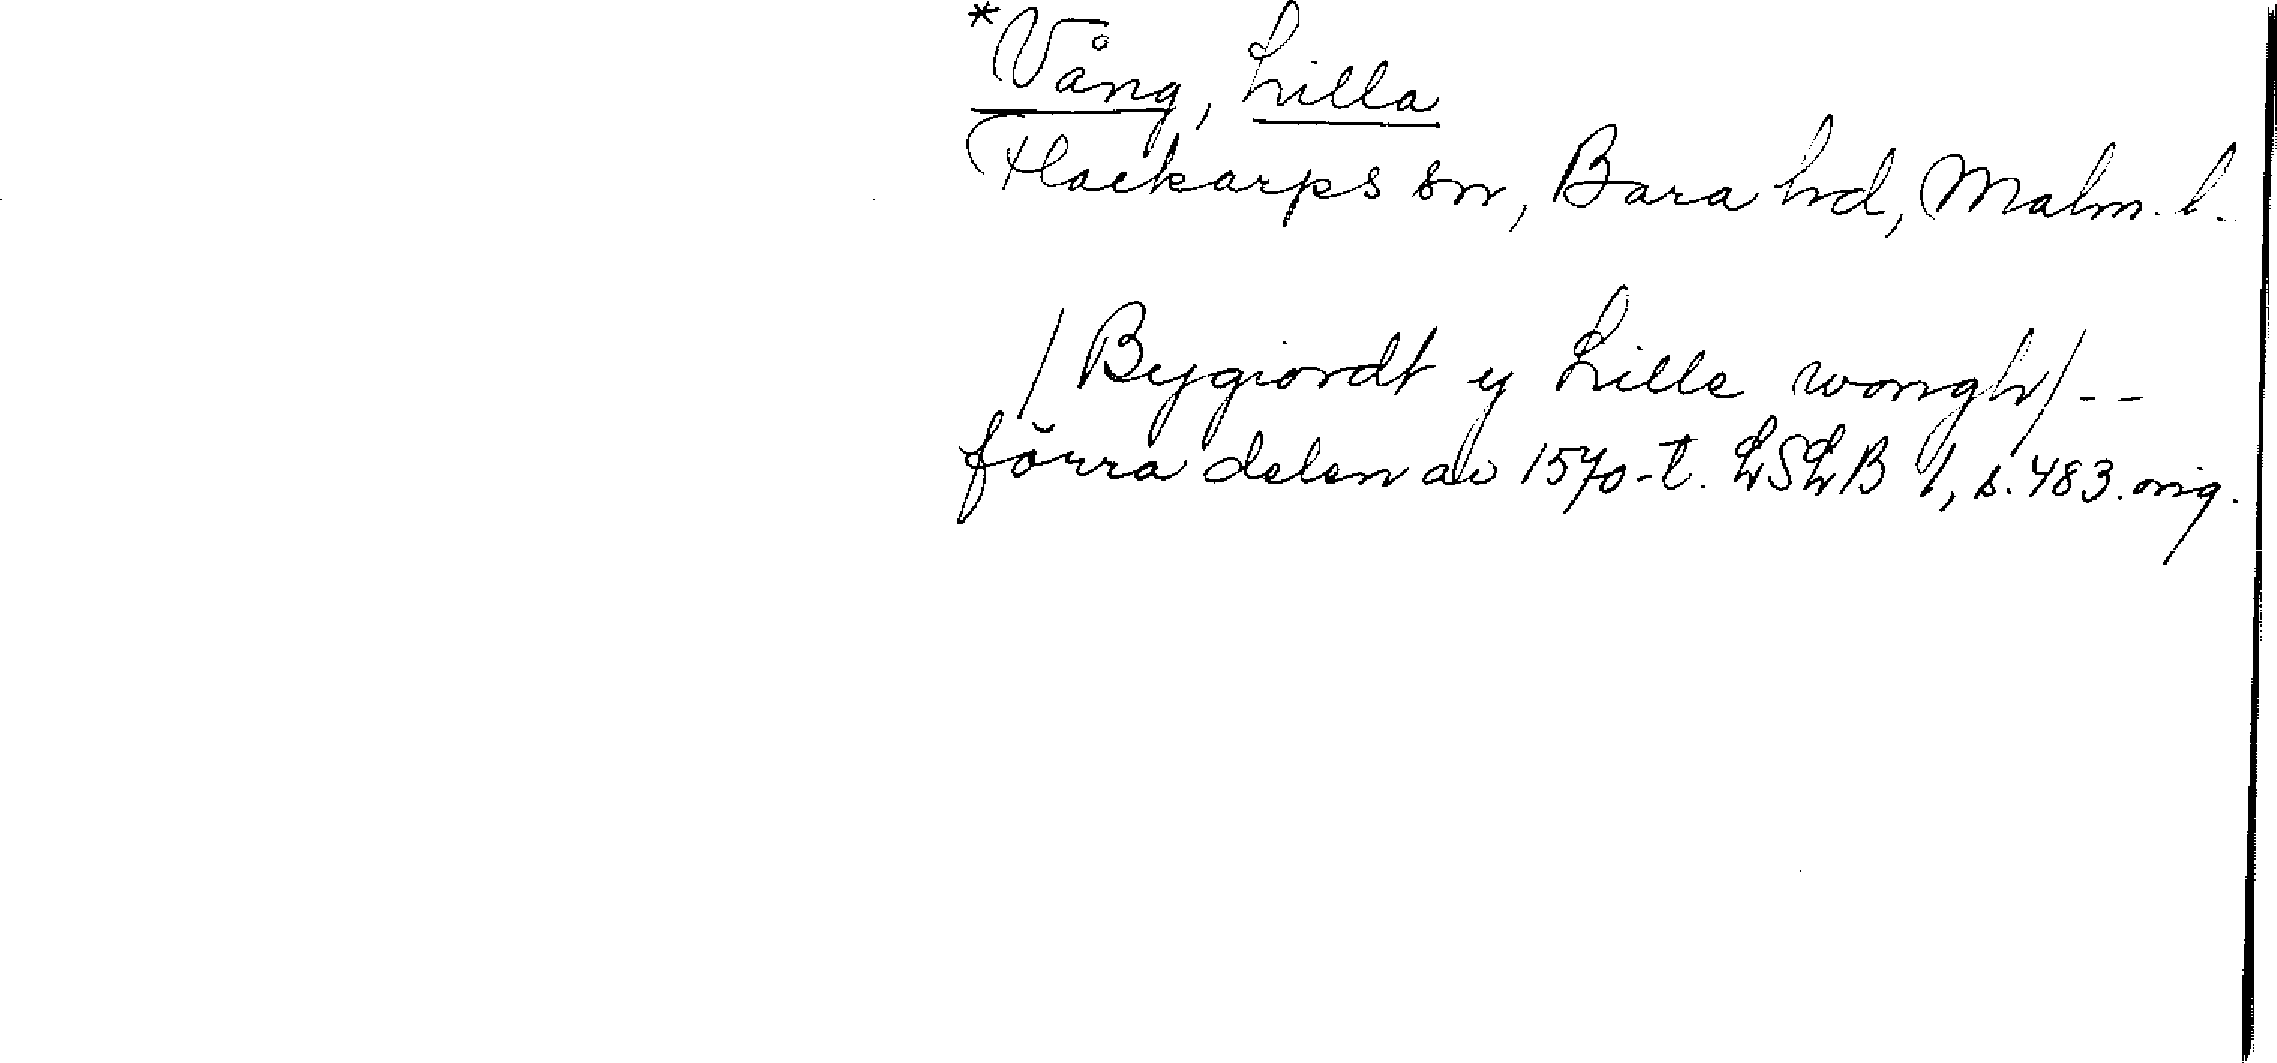 *Vång, Lilla
Flackarps sn, Bara hd, Malm. l.
/Bygiordt y Lille wongh/--
förra delen av 1570-t. LSLB I, s. 483. orig.